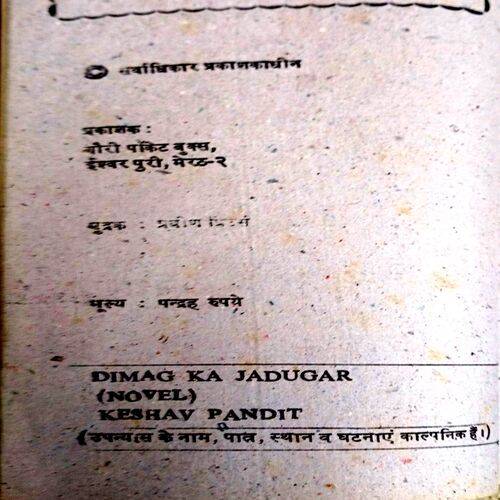 सर्वाधिकार प्रकाशकाधीन
प्रकाशक :
गौरी पॉकेट बुक्स,
ईश्वर पुरी, मेरठ-२
मुद्रक : प्रवीण प्रिंटर्स
मूल्य : पन्द्रह रुपये
DIMAG KA JADUGAR
(NOVEL)
KESHAV PANDIT
(उपन्यास के नाम, पात्र, स्थान व घटनाएं काल्पनिक हैं।)